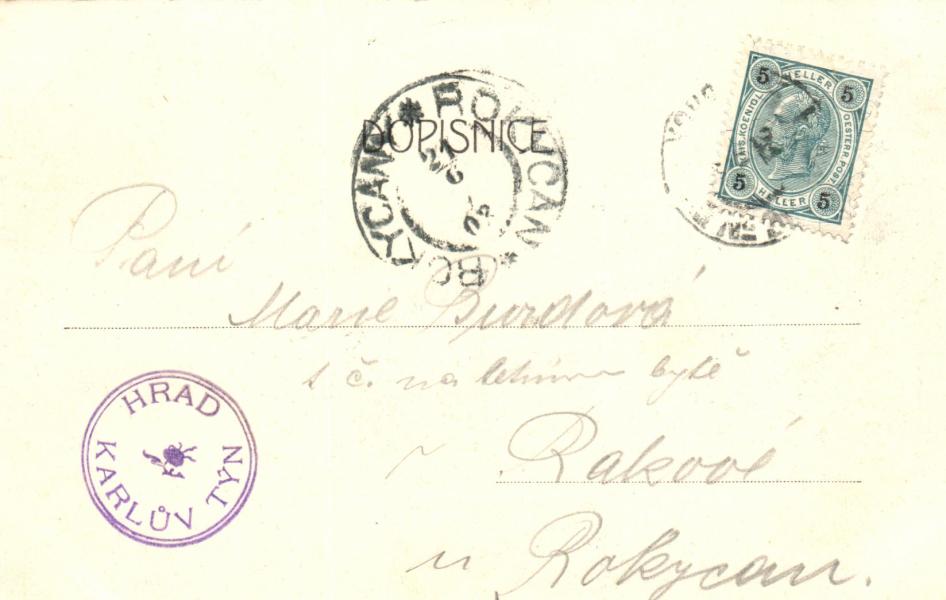 DOPISNICE
ROKYCANY * ROKYCAN *
21
6
05
5 HELLER 5
KAIS. KOENIGL. OESTERR. POST.
5 HELLER 5
Paní
Marie Burdová
t č. na letním bytě
v Rakové
u Rokycan.
HRAD
KARLŮV TÝN